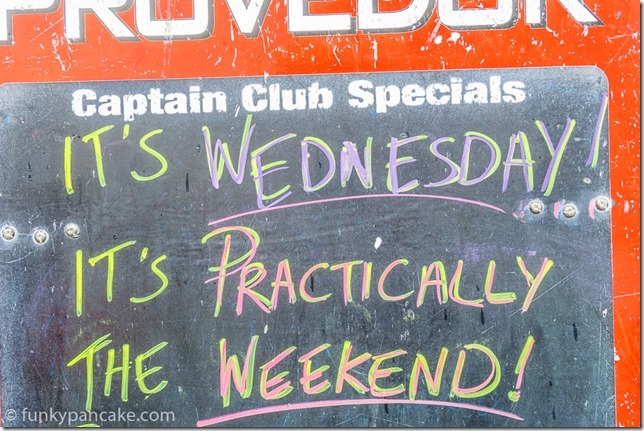 PROVEDOR
Captain Club Specials
IT'S WEDNESDAY!
IT'S PRACTICALLY
THE WEEKEND!
© funkypancake.com